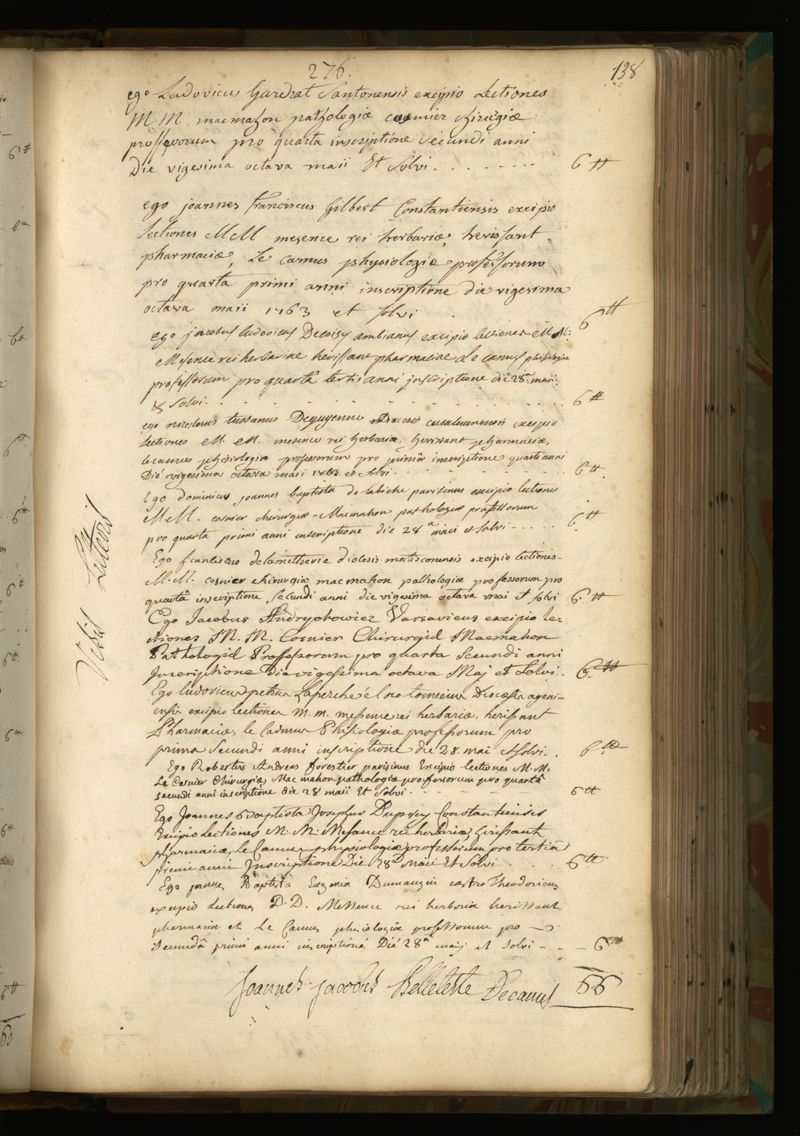 276.
138
ego Ludovicus Gardrat Santonensis excipio Lectiones
M M macmahon pathologiæ cosnier chirugiæ
professorum pro quarta inscriptione secundi anni
Die vigesima octava maii Et solvi . . . . . . . . 6 ₶
ego joannes Franciscus Gilbert Constantiensis excipio
Lectiones M M mesence rei herbariæ, herissant
pharmaciæ, Le camus physiologiæ professorum
pro quarta primi anni inscriptione die vigesima
octava maii 1763 et solvi . 6 ₶
ego jacobus ludovicus Decoisy ambianus excipio lectiones M M.
Mesence rei herbariae herissant pharmaciae Le camus phisiologiæ
professorum pro quartâ tertii anni inscriptione die 28ª maii
& solvi . . . . . . . . 6 ₶
ego nicolaus tussanus excipio
lectiones M M. mesence rei herbariæ herissant pharmaciæ,
le camus phisiologiæ professorum pro primâ inscriptione quarti anni
Die vigesima octava maii 1763 et solvi . . . . . 6 ₶
Ego dominicus joannes baptista de labiche parisinus excipio lectiones
M M. cosnier chirurgiæ - Macmahon pathologiæ professorum
pro quarta primi anni inscriptione die 28ª maii et solvi . . . . . 6 ₶
Ego franciscus delametherie diocesis matisconensis excipio lectiones
M. M. cosnier chirurgiæ macmahon pathologiæ professorum pro
quartâ inscriptione secundi anni die vigesima octava maii et solvi 6 ₶
Ego Jacobus Andrychowicz Varsavicus excipio lec
tiones M. M. Cosnier Chirurgiæ Macmahon
Pathologiæ Professorum pro quarta secundi anni
Inscriptione Die vigessima octava Maj et solvi . 6 ₶
Ego ludovicus petrus Laperche è loco tonneins Diocæsis agen-
ensis excipio lectiones m. m. messence rei herbariæ, herissant
Pharmaciæ, le Cadmus Phisiologiæ professorum pro
prima secundi anni inscriptione die 28. maii et solvi . . 6 ₶
Ego Robertus Andreas forestier parisinus Excipio lectiones M. M.
Le Cosnier Chirurgiæ Mac mahon pathologiæ professorum pro quartâ
secundi anni inscriptione die 28 maii Et solvi . . . . 6 ₶
Ego Joannes Baptista Josephus Duprey Constantiensis
Excipio Lectiones M. M. Mesence rei herbariæ, herissant
pharmaciæ, le Camus physiologiæ professorum pro tertia
primi anni Inscriptione Die 28ª Maii Et solvi . . . . 6 ₶
Ego joannes Baptista Eugenius Dumangin castro Theodoricus
excipio Lectiones D. D. Messence rei herbariæ herissant
pharmaciæ et Le Camus phisiologiæ professorum pro
secundâ primi anni inscriptione Die 28ª maij et solvi - - - 6 ₶
Joannes jacobus Belleteste Decanus 66